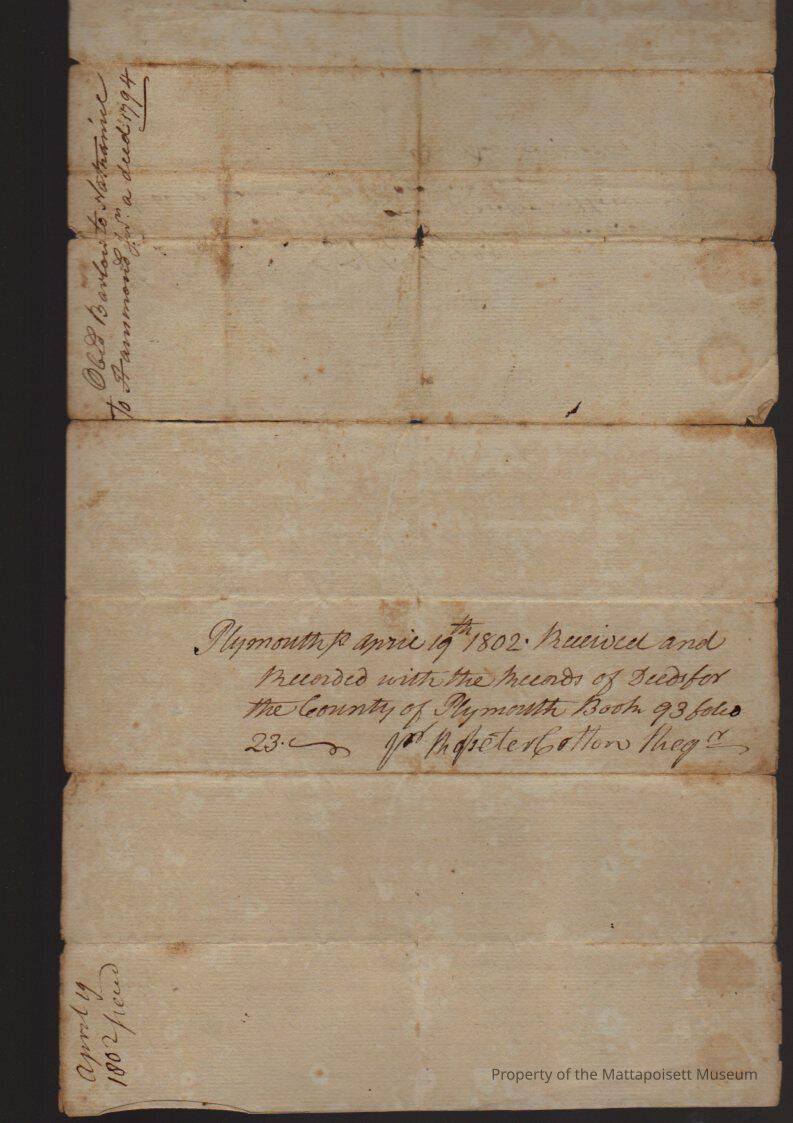 Obed Barlow to Nathaniel
To Hammond Junr. a deed 1794
Plymouth ss April 19th 1802. Received and
Recorded with the Records of Deeds for
the County of Plymouth Book 93 folio
23. pr Rosseter Cotton Regr
April 19
1802
Property of the Mattapoisett Museum